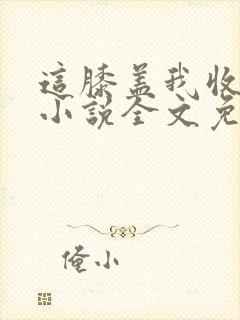 這膝盖我收
小説全文免
俺小